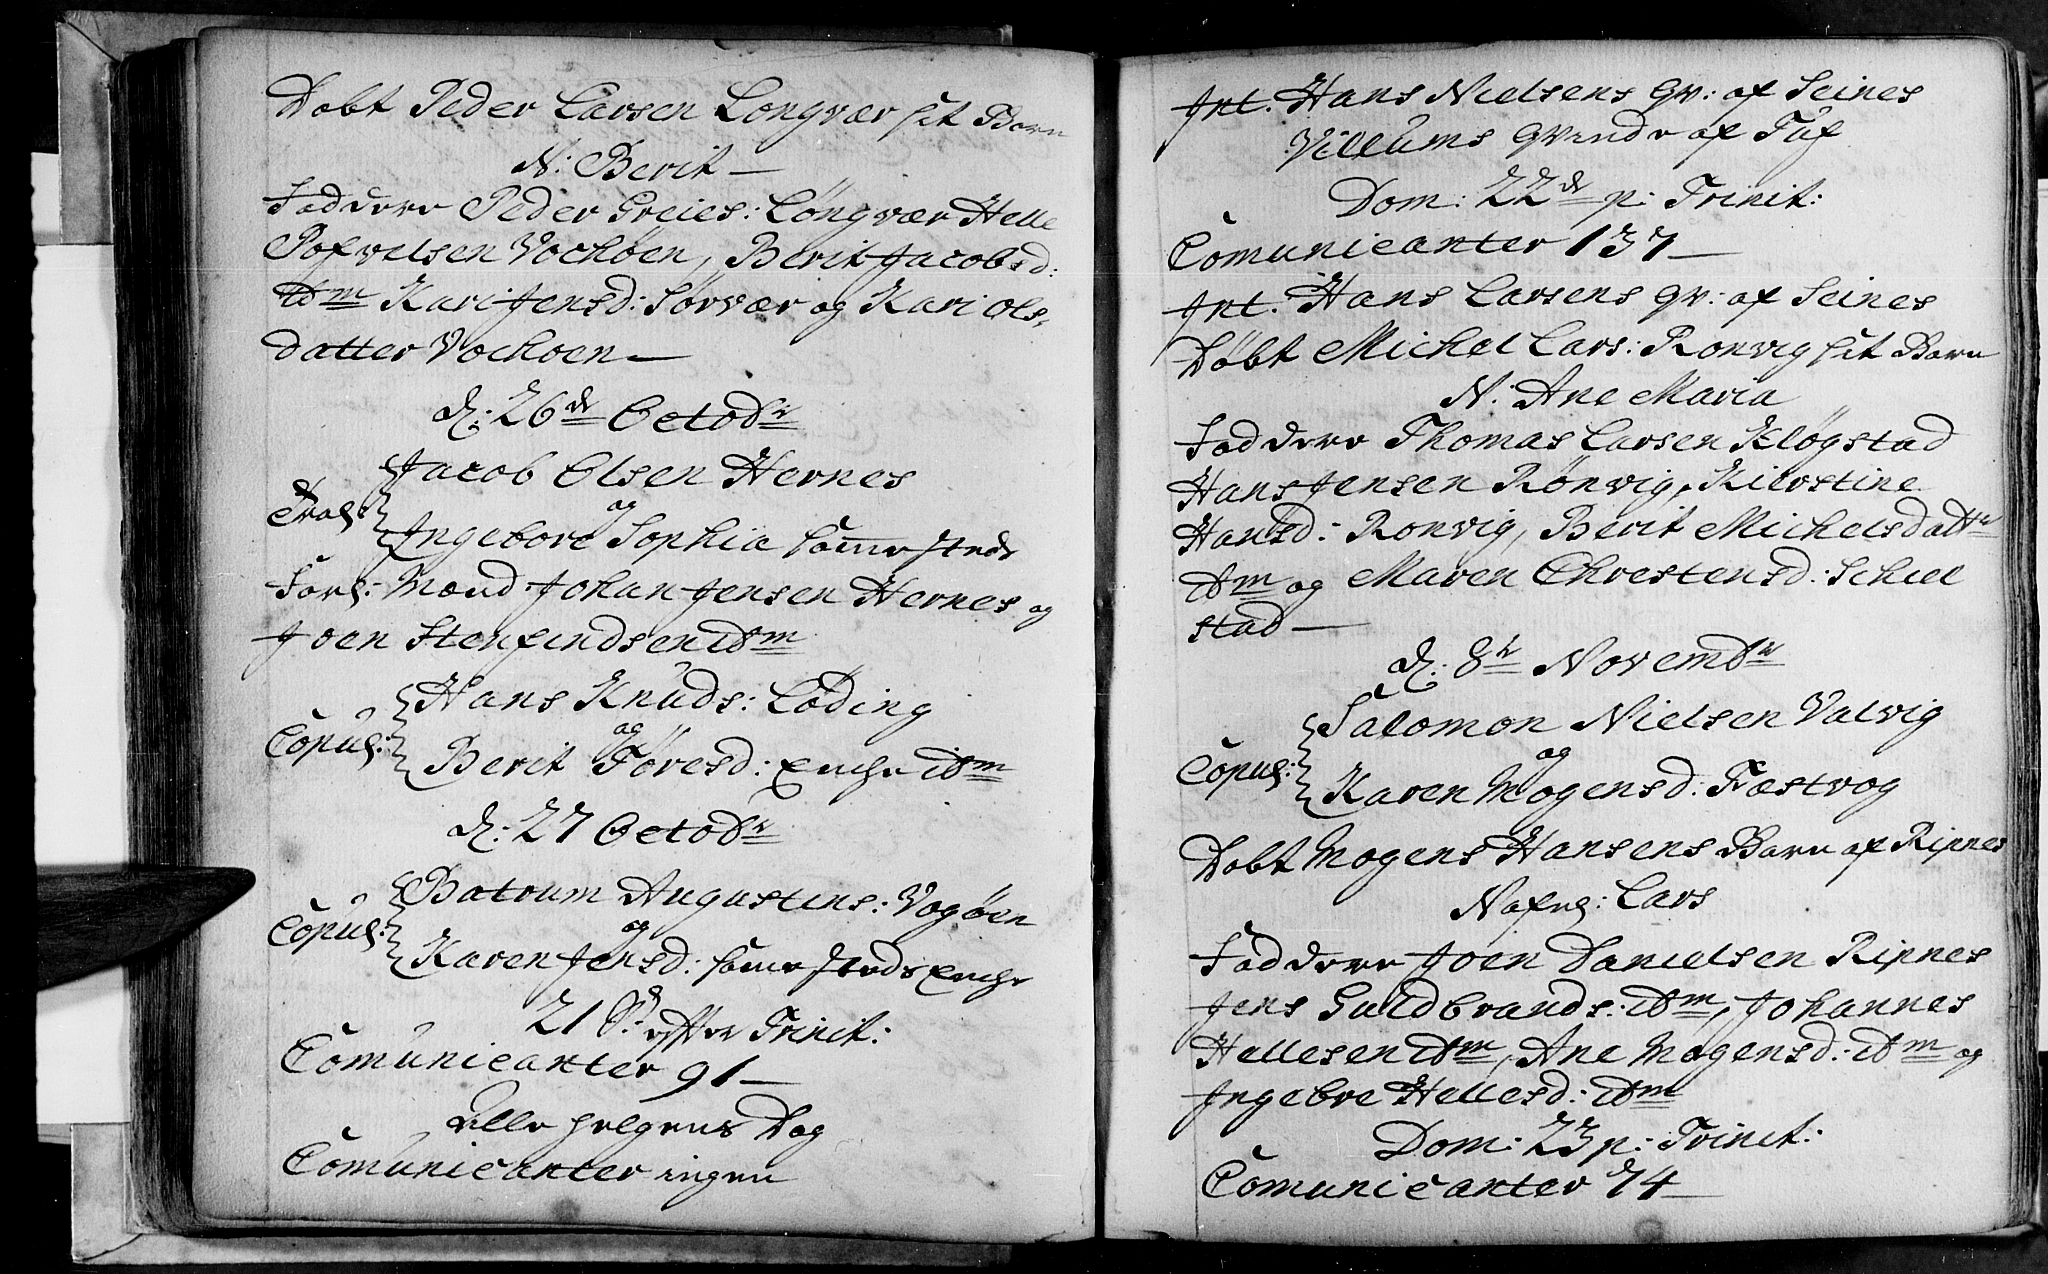 Døbt Peder Larsen Longvær sit Barn
N: Berit —
Faddere Peder Greies: Longvær Helle
Pofvelsen Vochøen, Berit Jacobsd:
ibm Kari Jensd: Sørvær og Kari Ols-
datter Vochoen —
d: 26de Octobr
Jacob Olsen Hernes
Trol: og
Ingebore Sophia samesteds
Forl: Mænd Johan Jensen Hernes og
Joen Stenfindsen ibm
Hans Knuds: Løding
Copul: og
Berit Töresd: Enche ibm
d: 27 Octobr
Batrum Augustins: Vogøen
Copul: og
Karen Jensd: samesteds Enche
21 S: efter Trinit:
Comunicanter 91 —
Alle helgens Dag
Comunicanter ingen
Int. Hans Nielsens qv: af Seines
Villums qvinde af Tuf
Dom: 22de p: Trinit:
Comunicanter 137 —
Int. Hans Larsens qv: af Seines
Døbt Michel Lars: Ronvig sit Barn
N: Ane Maria
Faddere Thomas Larsen Kløgstad
Hans Jensen Rønvig, Kierstine
Hansd: Ronvig, Berit Michelsdattr
ibm og Maren Chrestensd: Schiel
stad —
d: 8de Novembr
Salomon Nielsen Valvig
Copul: og
Karen Mogensd: Fæstvog
Døbt Mogens Hansens Barn af Ripnes
Nafnl: Lars
Faddere Joen Danielsen Ripnes
Jens Guldbrands: ibm, Johannes
Hellesen ibm, Ane Mogensd: ibm og
Ingebre Hellesd: ibm
Dom: 23 p: Trinit:
Comunicanter 74 —